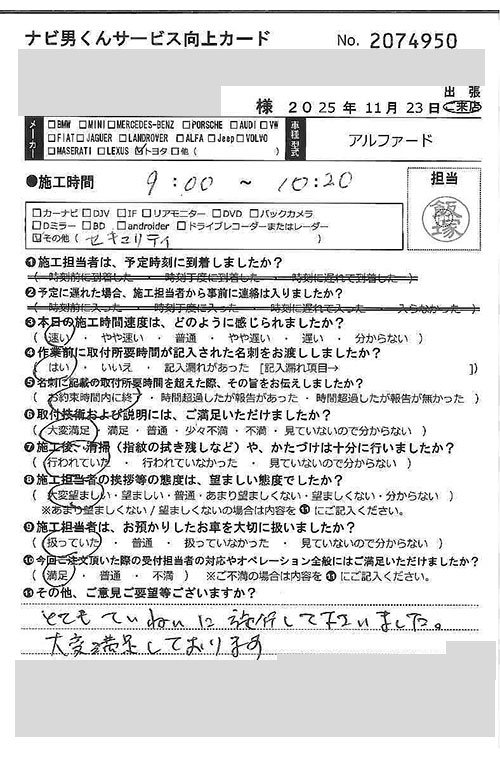 ナビ男くんサービス向上カード No. 2074950
様 2025年11月23日 出張 ご来店
メーカー □BMW □MINI □MERCEDES-BENZ □PORSCHE □AUDI □VW
□FIAT □JAGUER □LANDROVER □ALFA □Jeep □VOLVO
□MASERATI □LEXUS ☑トヨタ □他 ( )
車種型式 アルファード
●施工時間 9:00 ~ 10:20
担当 飯塚
□カーナビ □DJV □IF □リアモニター □DVD □バックカメラ
□Dミラー □BD □androider □ドライブレコーダーまたはレーダー
☑その他 ( セキュリティ )
❶施工担当者は、予定時刻に到着しましたか?
( 時刻前に到着した ・ 時刻丁度に到着した ・ 時刻に遅れて到着した )
❷予定に遅れた場合、施工担当者から事前に連絡は入りましたか?
( 時刻前に入った ・ 時刻丁度に入った ・ 時刻に遅れて入った ・ 入らなかった )
❸本日の施工時間速度は、どのように感じられましたか?
( 速い ・ やや速い ・ 普通 ・ やや遅い ・ 遅い ・ 分からない )
❹作業前に取付所要時間が記入された名刺をお渡ししましたか?
( はい ・ いいえ ・ 記入漏れがあった [記入漏れ項目→ ])
❺名刺に記載の取付所要時間を超えた際、その旨をお伝えしましたか?
( お約束時間内に終了 ・ 時間超過したが報告があった ・ 時間超過したが報告が無かった )
❻取付技術および説明には、ご満足いただけましたか?
( 大変満足 ・ 満足 ・ 普通 ・ 少々不満 ・ 不満 ・ 見ていないので分からない )
❼施工後、清掃(指紋の拭き残しなど)や、かたづけは十分に行いましたか?
( 行われていた ・ 行われていなかった ・ 見ていないので分からない )
❽施工担当者の挨拶等の態度は、望ましい態度でしたか?
( 大変望ましい ・ 望ましい ・ 普通 ・ あまり望ましくない ・ 望ましくない ・ 分からない )
※あまり望ましくない / 望ましくないの場合は内容を⓫にご記入ください。
❾施工担当者は、お預かりしたお車を大切に扱いましたか?
( 扱っていた ・ 普通 ・ 扱っていなかった ・ 見ていないので分からない )
❿今回ご注文頂いた際の受付担当者の対応やオペレーション全般にはご満足いただけましたか?
( 満足 ・ 普通 ・ 不満 ) ※ご不満の場合は内容を⓫にご記入ください。
⓫その他、ご意見ご要望等ございますか?
とてもていねいに施行して下さいました。
大変満足しております